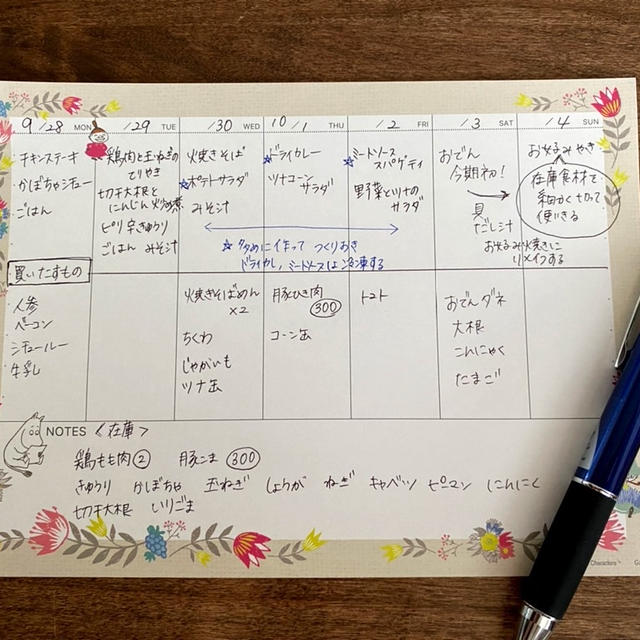 9/28 MON
/29 TUE
/30 WED
10/1 THU
/2 FRI
/3 SAT
/4 SUN
チキンステーキ
かぼちゃシチュー
ごはん
鶏肉と玉ねぎの
てりやき
切干大根と
にんじん炒め煮
ピリ辛きゅうり
ごはん みそ汁
焼きそば
☆ポテトサラダ
みそ汁
☆ドライカレー
ツナコーン
サラダ
☆ミートソース
スパゲティ
野菜とツナの
サラダ
おでん
今期初!
→
具
だし汁
お好み焼きに
リメイクする
お好みやき
在庫食材で
細かく切って
使いきる
☆多めに作って つくりおき
ドライカレー、ミートソースは冷凍する
買いたすもの
人参
ベーコン
シチュールー
牛乳
焼きそばめん
×2
ちくわ
じゃがいも
ツナ缶
豚ひき肉
300
コーン缶
トマト
おでんダネ
大根
こんにゃく
たまご
NOTES <在庫>
鶏もも肉② 豚こま 300
きゅうり かぼちゃ 玉ねぎ しょうが ねぎ キャベツ ピーマン にんにく
切干大根 いりごま
Characters